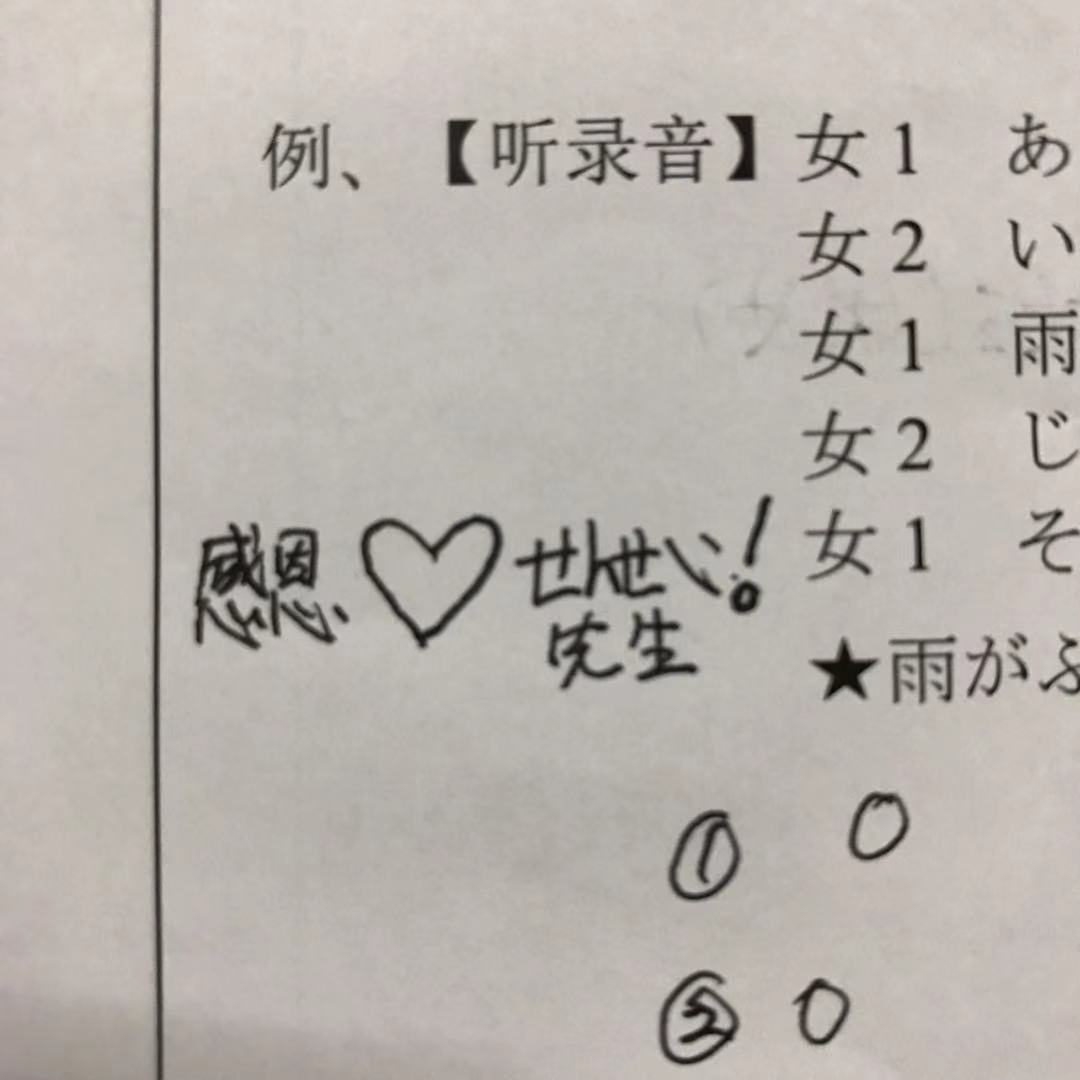 例、【听录音】女1 あ
女2 い
女1 雨
女2 じ
女1 そ
感恩♡せんせい!
先生
★雨がふ
① 〇
② 〇